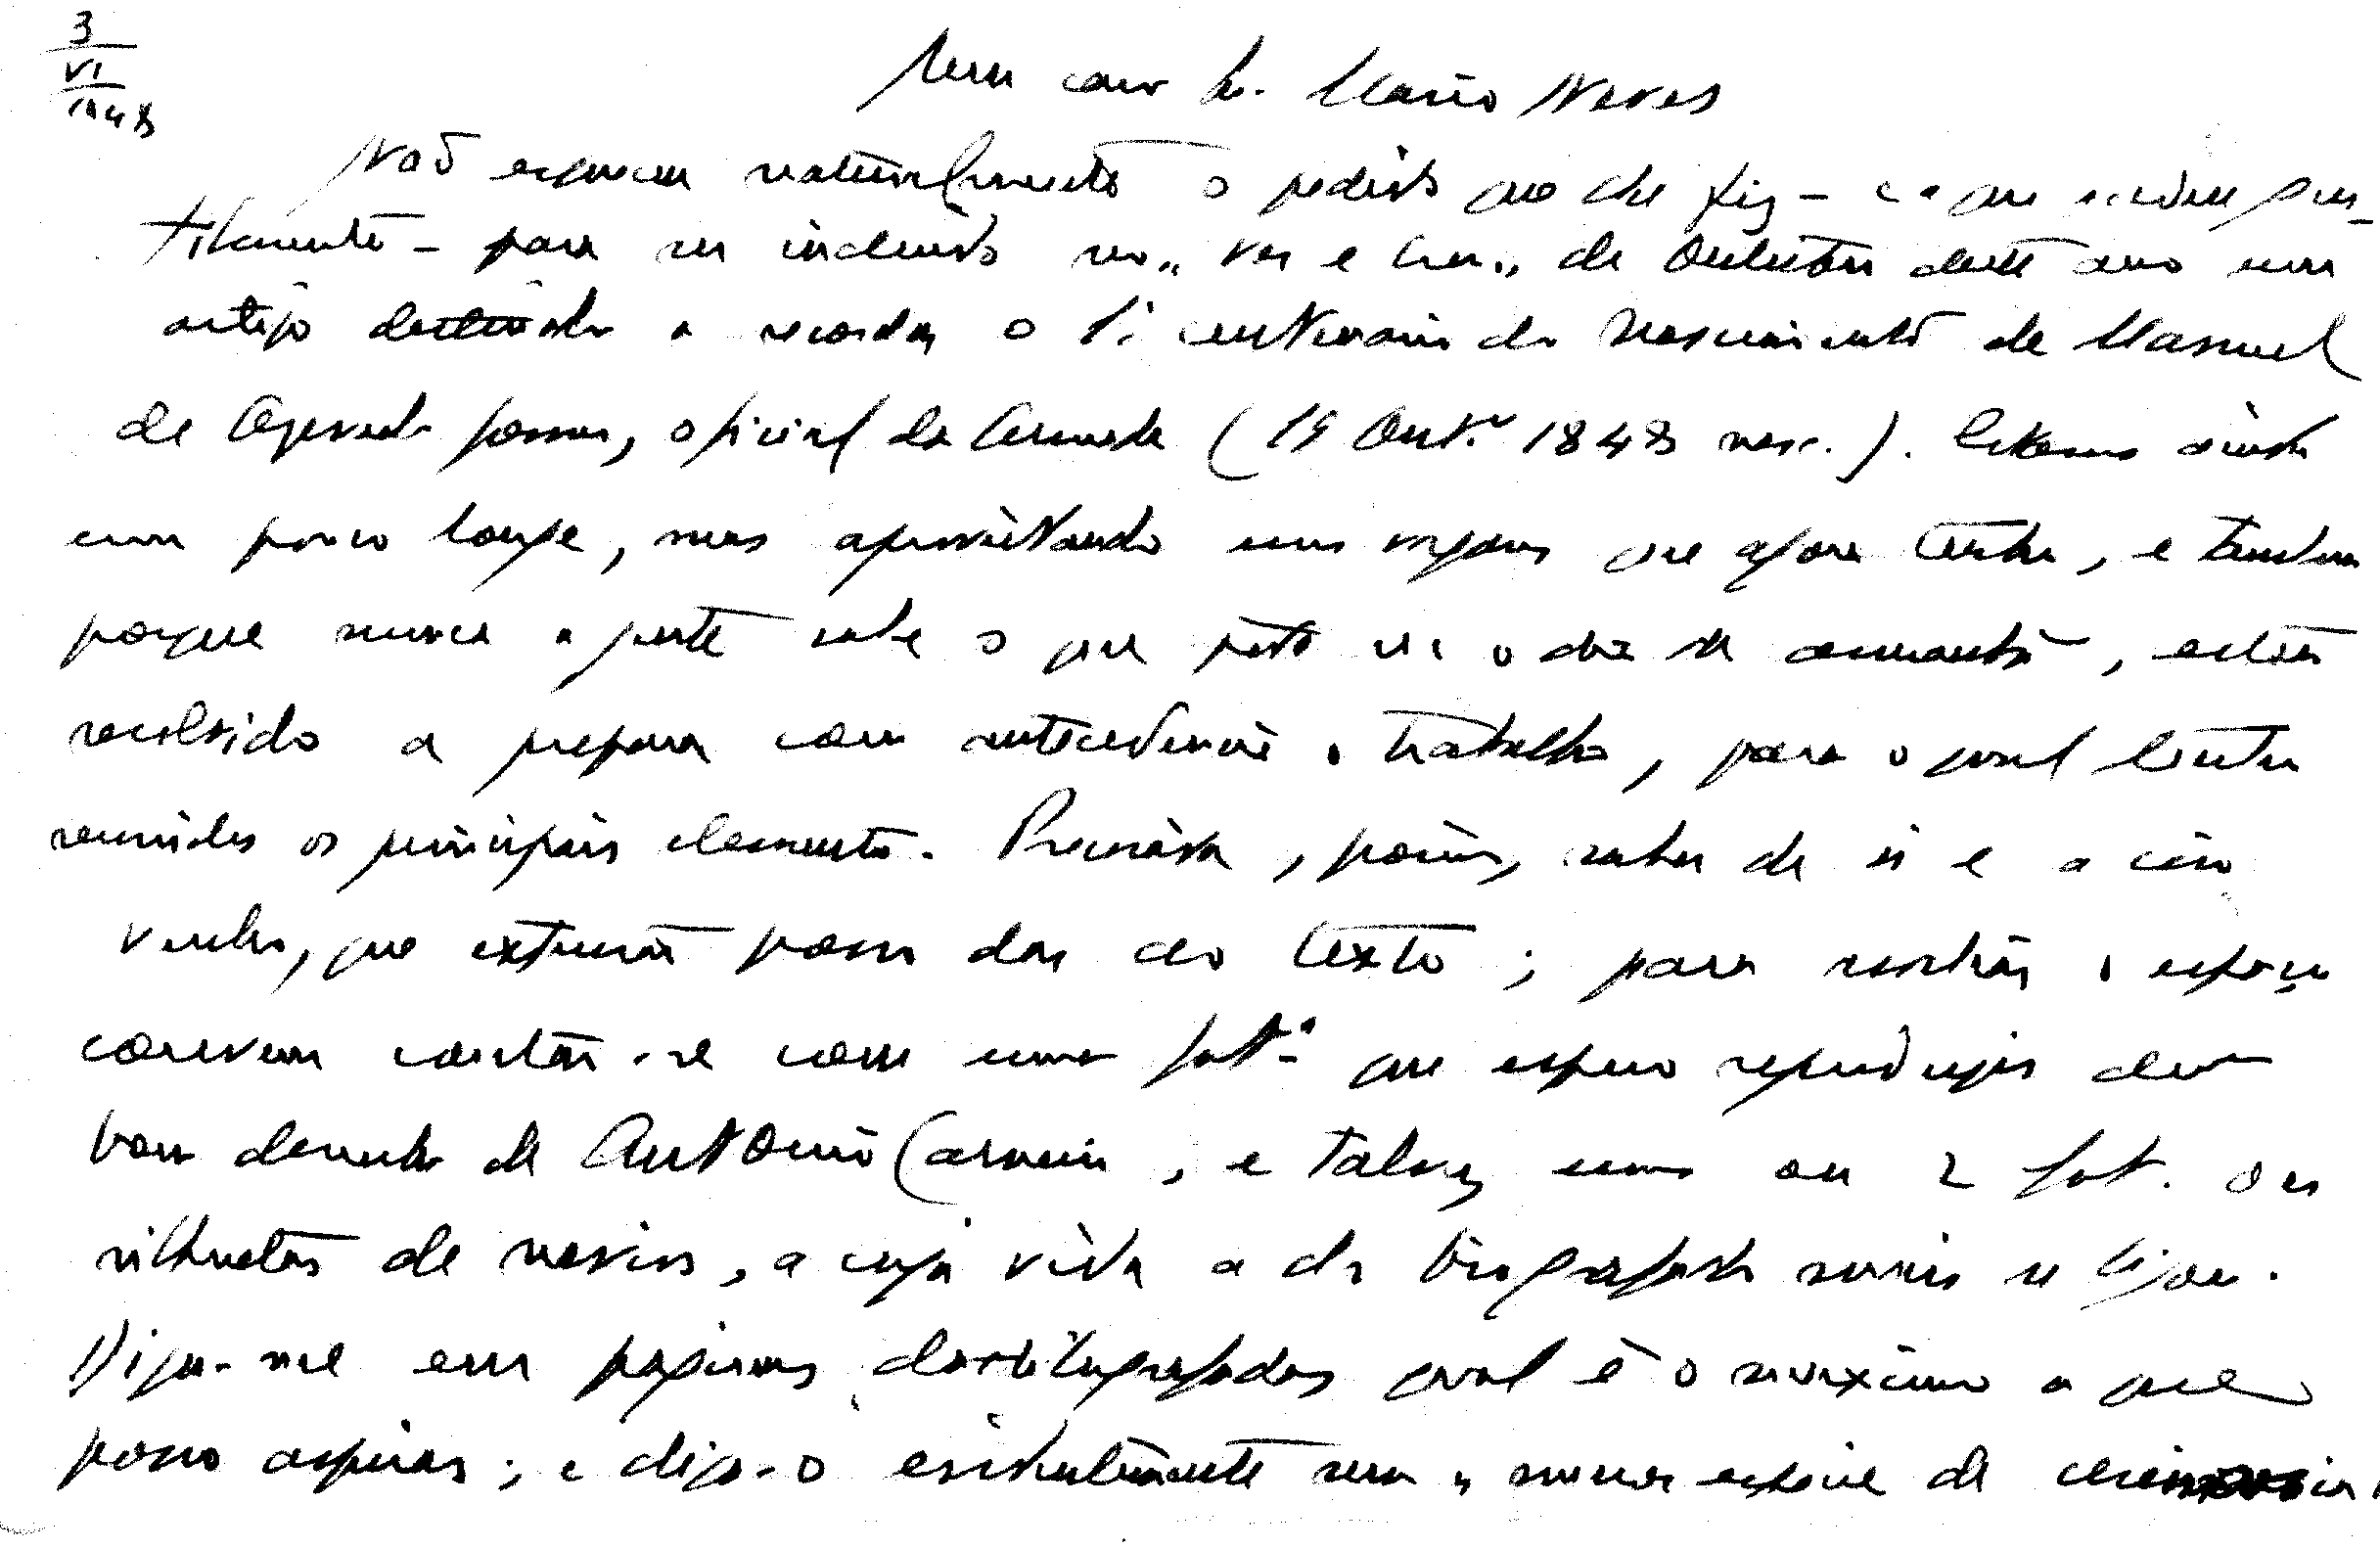 3
VI
1948
Meu caro Dr. Mário Neves
Não esqueceu naturalmente o pedido que lhe fiz — e a que acedeu gen-
tilmente — para ser incluído no "Ver e Crer" de Outubro deste ano um
artigo destinado a recordar o 1º centenário do nascimento de Manuel
de Azevedo Gomes, oficial da Armada (19 Out.º 1848 nasc.). Estamos ainda
um pouco longe, mas aproveitando uns vagares que agora tenho, e também
porque nunca a gente sabe o que pode ser o dia de amanhã, estou
resolvido a preparar com antecedência o trabalho, para o qual tenho
reunidos os principais elementos. Precisava, porém, saber de si e a isso
venho, que extensão posso dar ao texto; para restringir o espaço
convem contar-se com uma fot.ª que espero reproduzir dum
bom desenho de António Carneiro, e talvez uma ou 2 fot. ou
silhuetas de navios, a cuja vida a do biografado mais se ligou.
Diga-me em páginas dactilografadas qual é o máximo a que
posso aspirar; e diga-o evidentemente sem a menor espécie de cerimónia